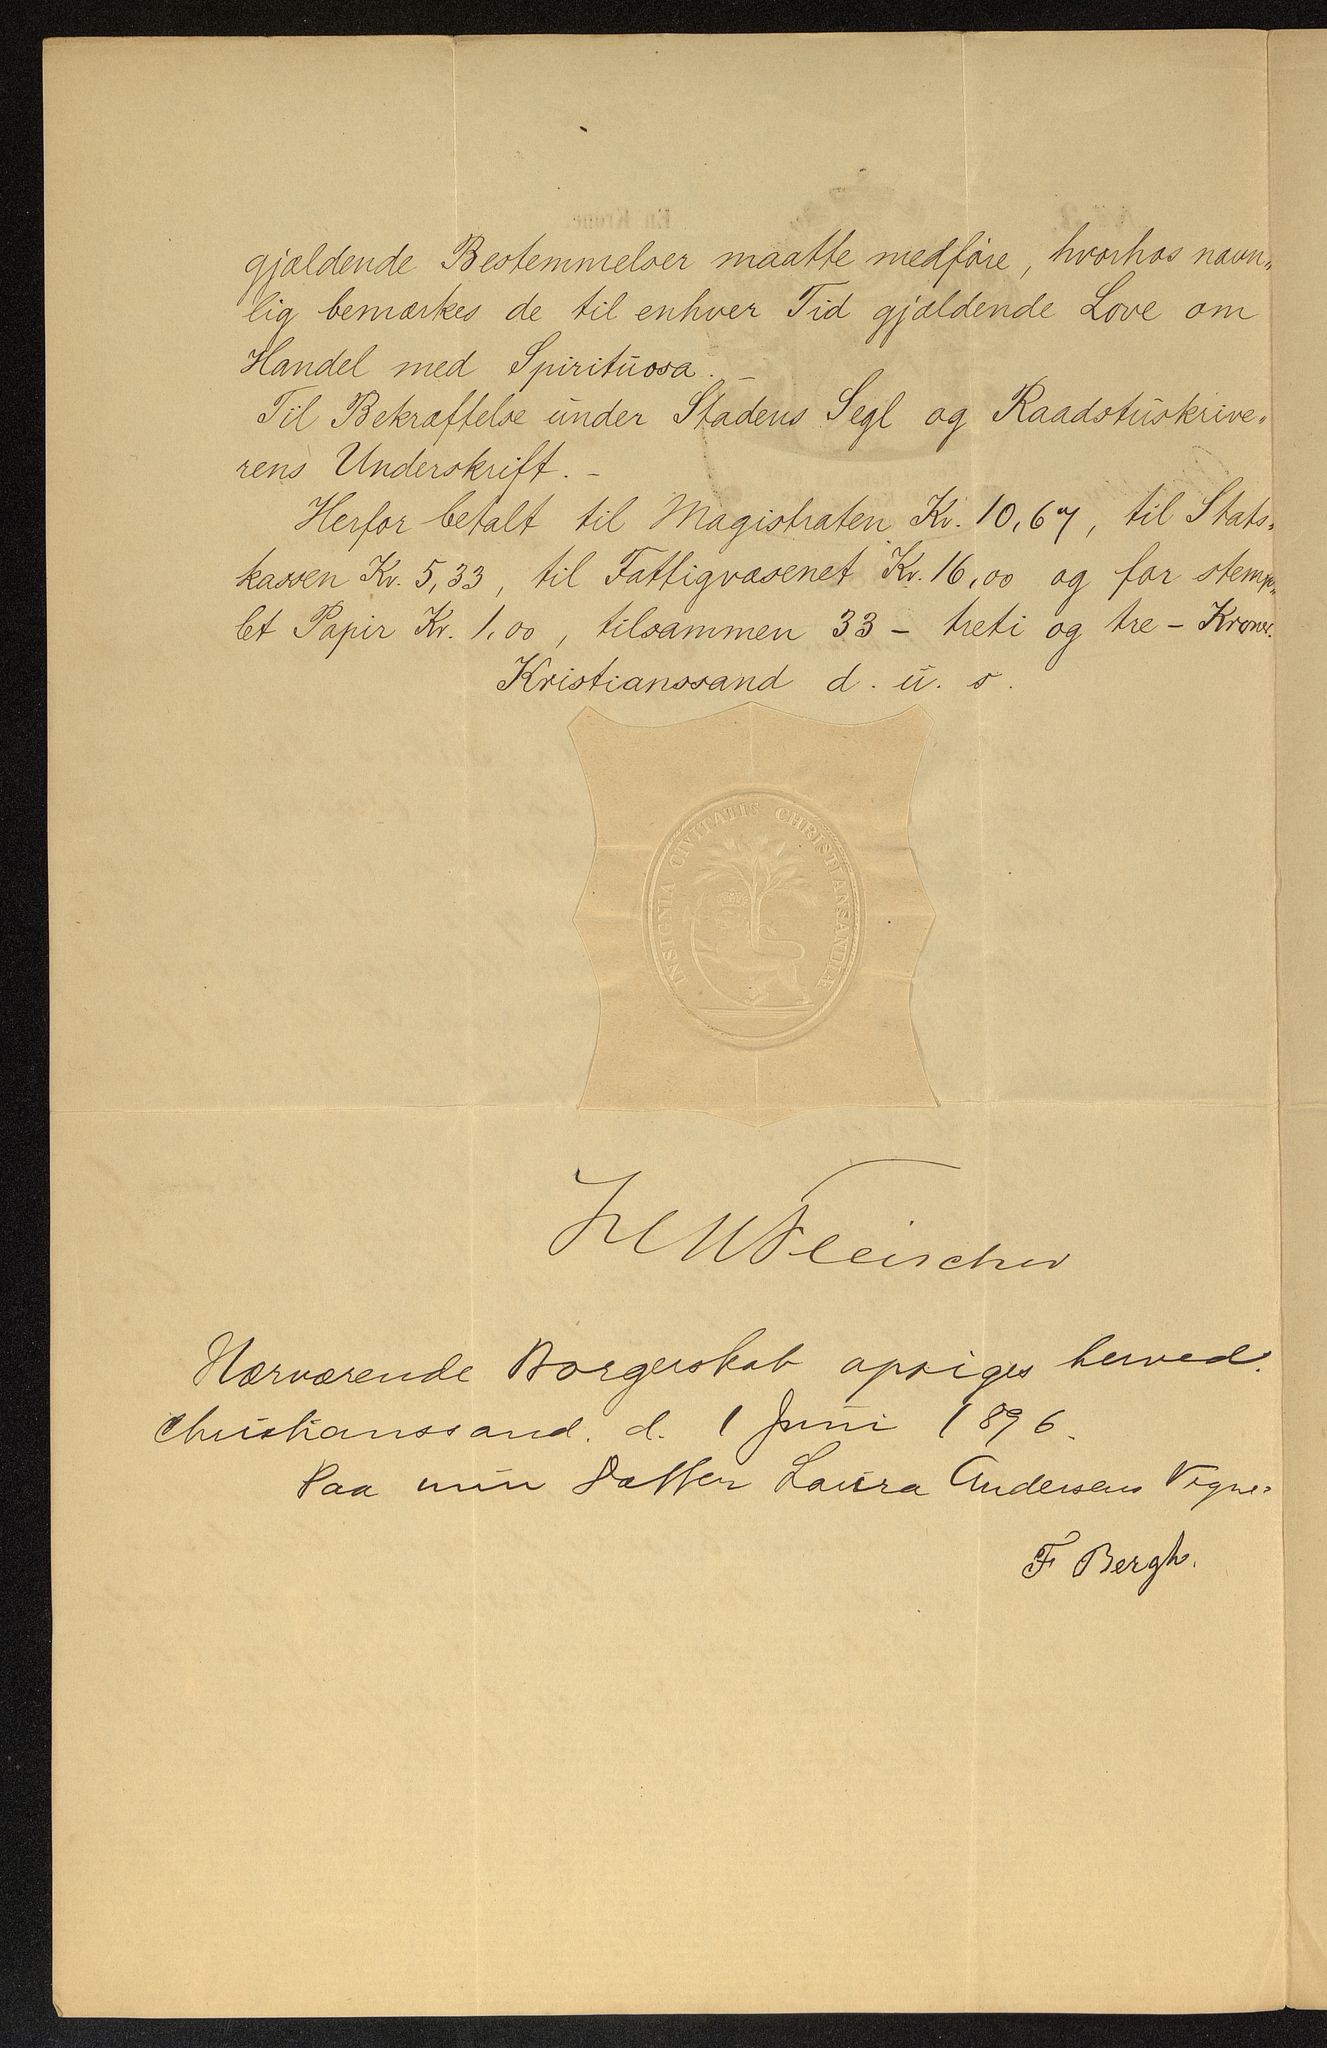 gjældende Bestemmelser maatte medføre, hvorhos navn„
lig bemærkes de til enhver Tid gjældende Love om
Handel med Spirituosa. –
Til Bekræftelse under Stadens Segl og Raadstuskrive„
rens Underskrift. –
Herfor betalt til Magistraten Kr. 10,67, til Stats„
kassen Kr. 5,33, til Fattigvæsenet Kr. 16,00 og for stemp„
let Papir Kr. 1,00, tilsammen 33 – treti og tre – Kroner.
Kristianssand d. u. s.
INSIGNIA CIVITATIS CHRISTIANSANDIÆ
Fleischer
Nærværende Borgerskab opsiges herved.
Christianssand. d. 1 Juni 1896.
Paa min Datter Laura Andersens Vegne.
F Bergh.